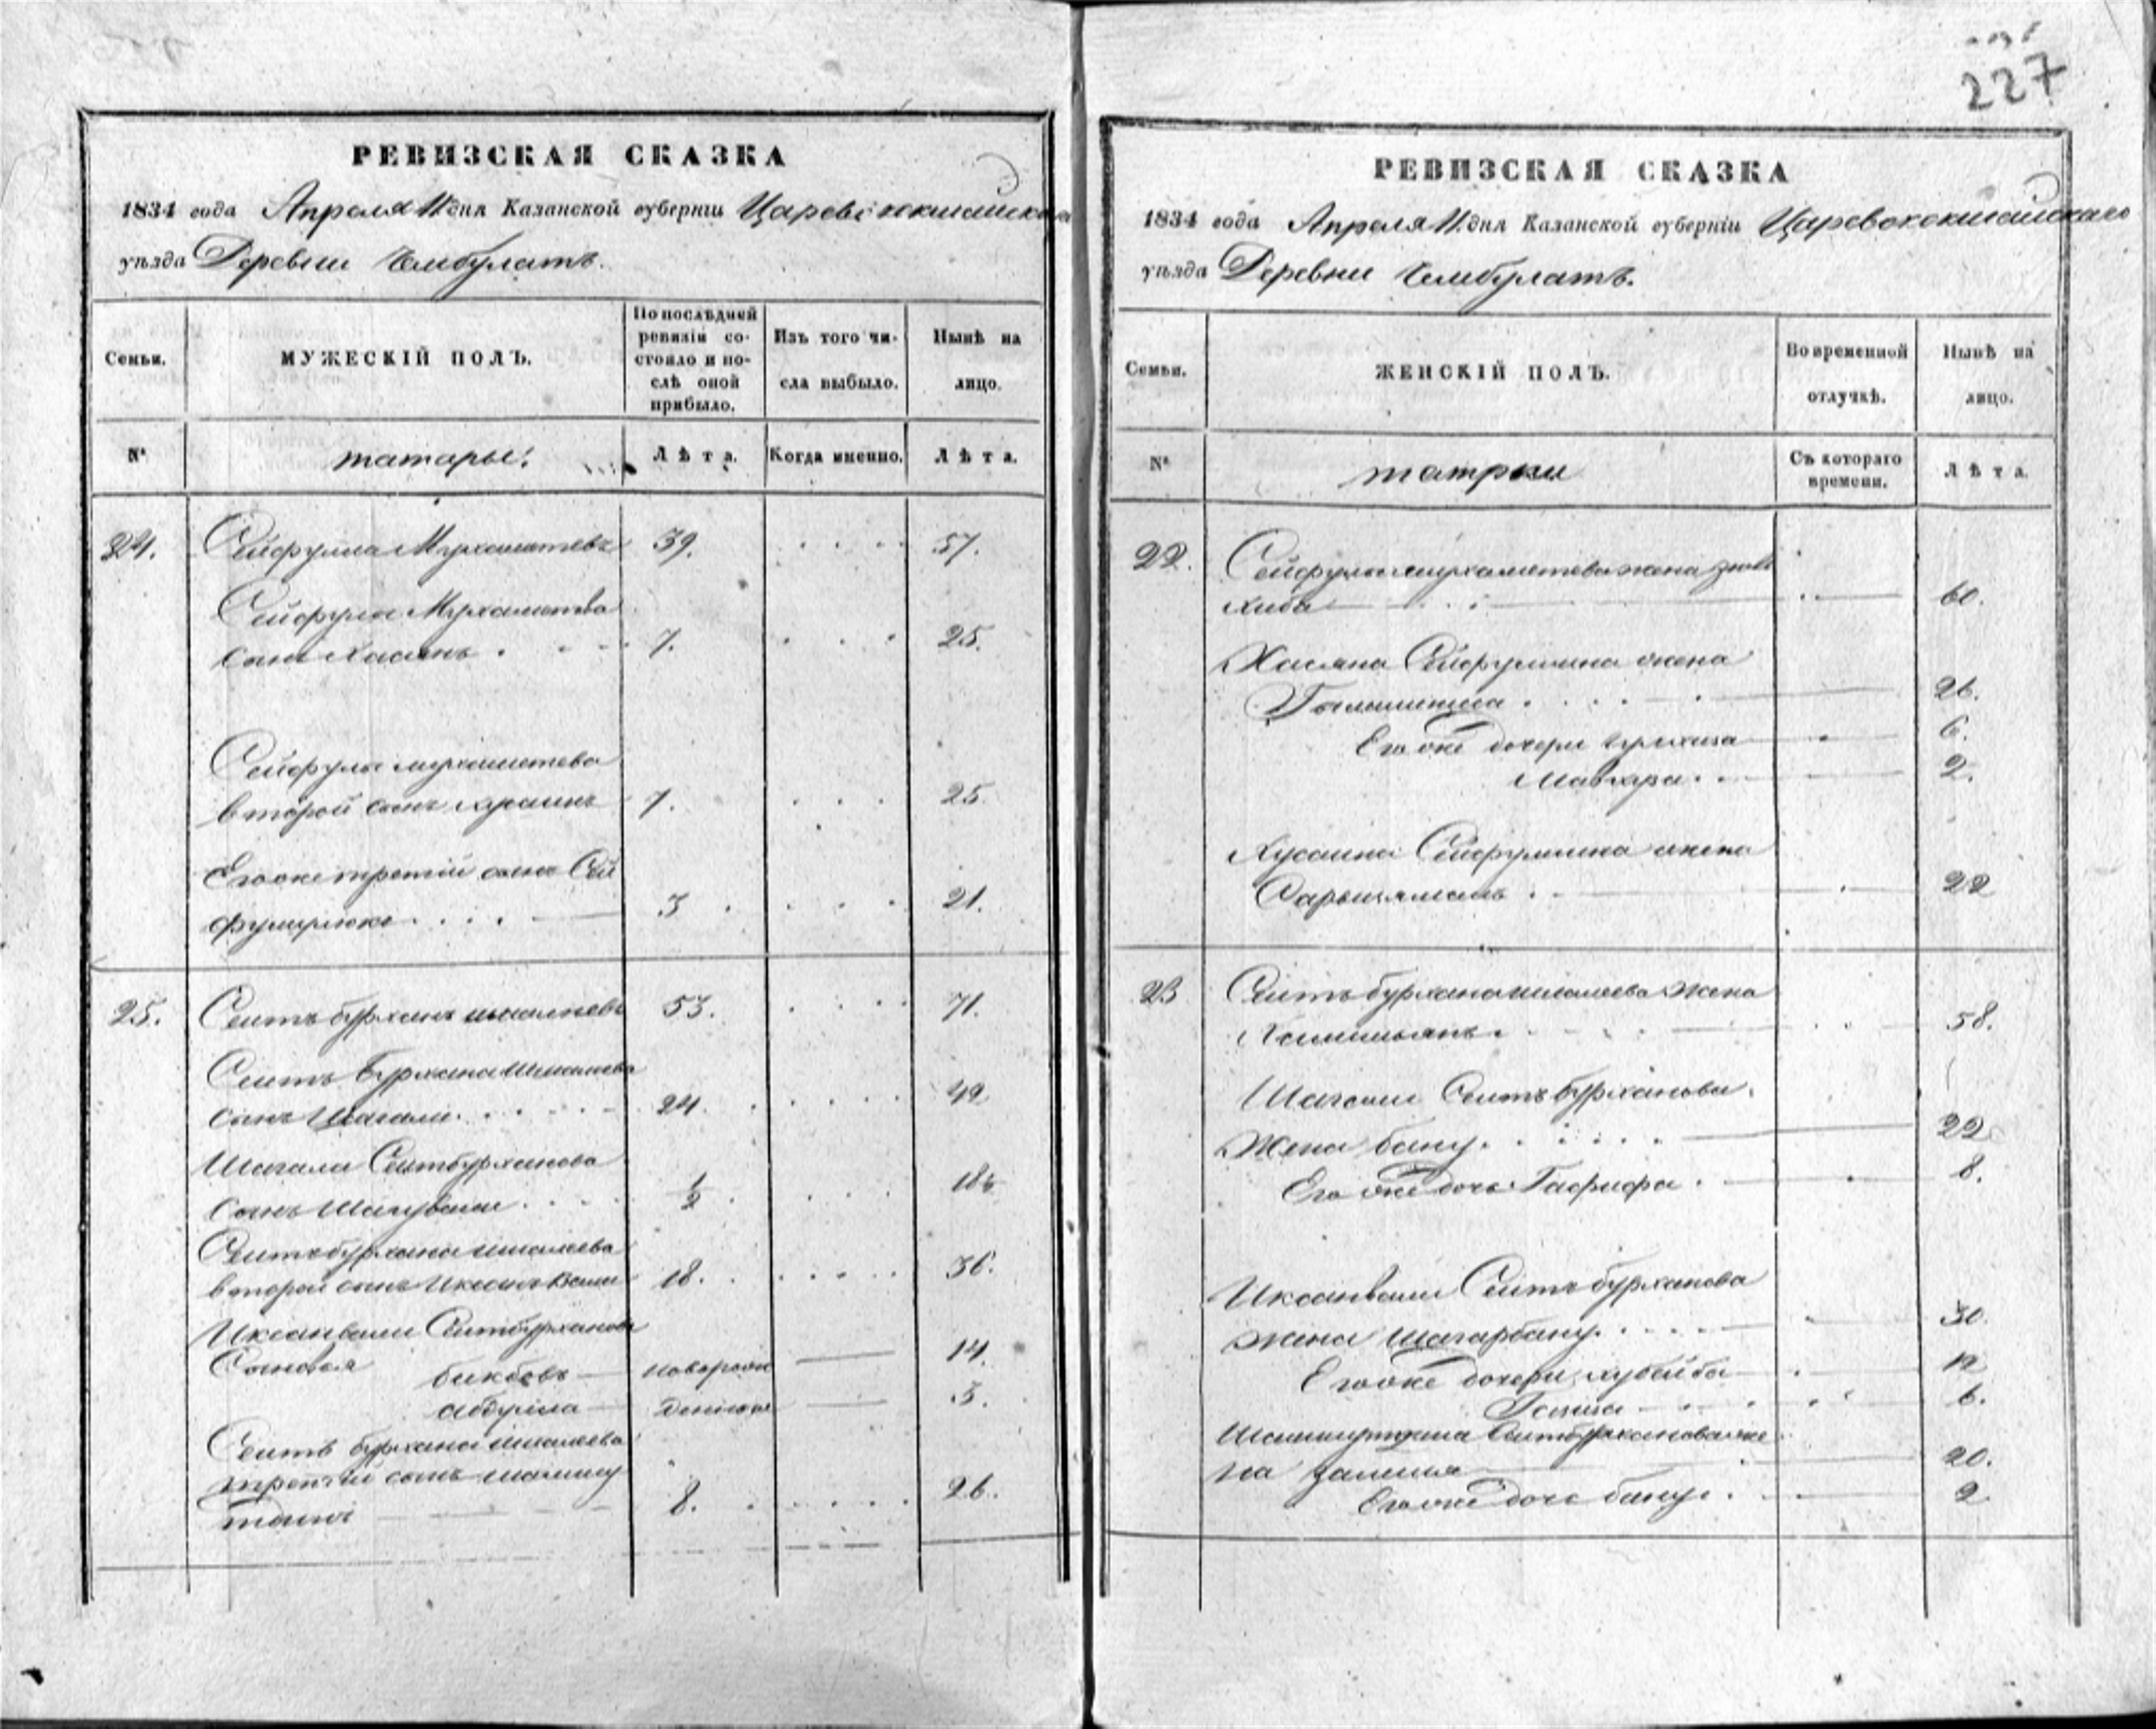 227
РЕВИЗСКАЯ СКАЗКА
1834 года Апреля 11 дня Казанской губерніи Царевококшайскаго
уѣзда Деревни Чембулатъ.
Семьи.
МУЖЕСКІЙ ПОЛЪ.
По послѣдней ревизіи состояло и послѣ оной прибыло.
Изъ того числа выбыло.
Нынѣ на лицо.
№
татары.
Лѣта.
Когда именно.
Лѣта.
24. Сейфулла Мухаметевъ 39. 57.
Сейфулы Мухаметева
сынъ Хасянъ 7. 25.
Сейфулы мухаметева
второй сынъ 7. 25.
Егоже третій сынъ Сей
фулмулюкъ 3 21.
25. Сеитъ бурханъ 53. 71.
Сеитъ бурхана
сынъ Шагали 24. 42
Шагали Сеитбурханова
сынъ Шагували 1/2 18½
Сеитъ бурхана
второй сынъ Иксанъ Вали 18. 36.
Иксанвали Сеитбурханова
Сыновья новорож 14.
абдулла денные 5.
Сеитъ бурхана
третій сынъ
8. 26.
РЕВИЗСКАЯ СКАЗКА
1834 года Апреля 11 дня Казанской губерніи Царевококшайскаго
уѣзда Деревни Чембулатъ.
Семьи.
ЖЕНСКІЙ ПОЛЪ.
Во временной отлучкѣ.
Нынѣ на лицо.
№
татрки
Съ котораго времени.
Лѣта.
22. Сейфулы мухаметева жена
60.
Хасяна Сейфуллина жена
26.
Егоже дочери 6.
Мавхара 2.
Хусаина Сейфуллина жена
22
23 Сеитъ бурхана жена
58.
Шагали Сеитъ бурханова
Жена бану. 22
Егоже дочь Гафифа 8.
Иксанвали Сеитъ бурханова
жена Шагарбану. 30.
Егоже дочери хубейба 12
6.
Сеитбурханова же
на 20.
Егоже дочь 2